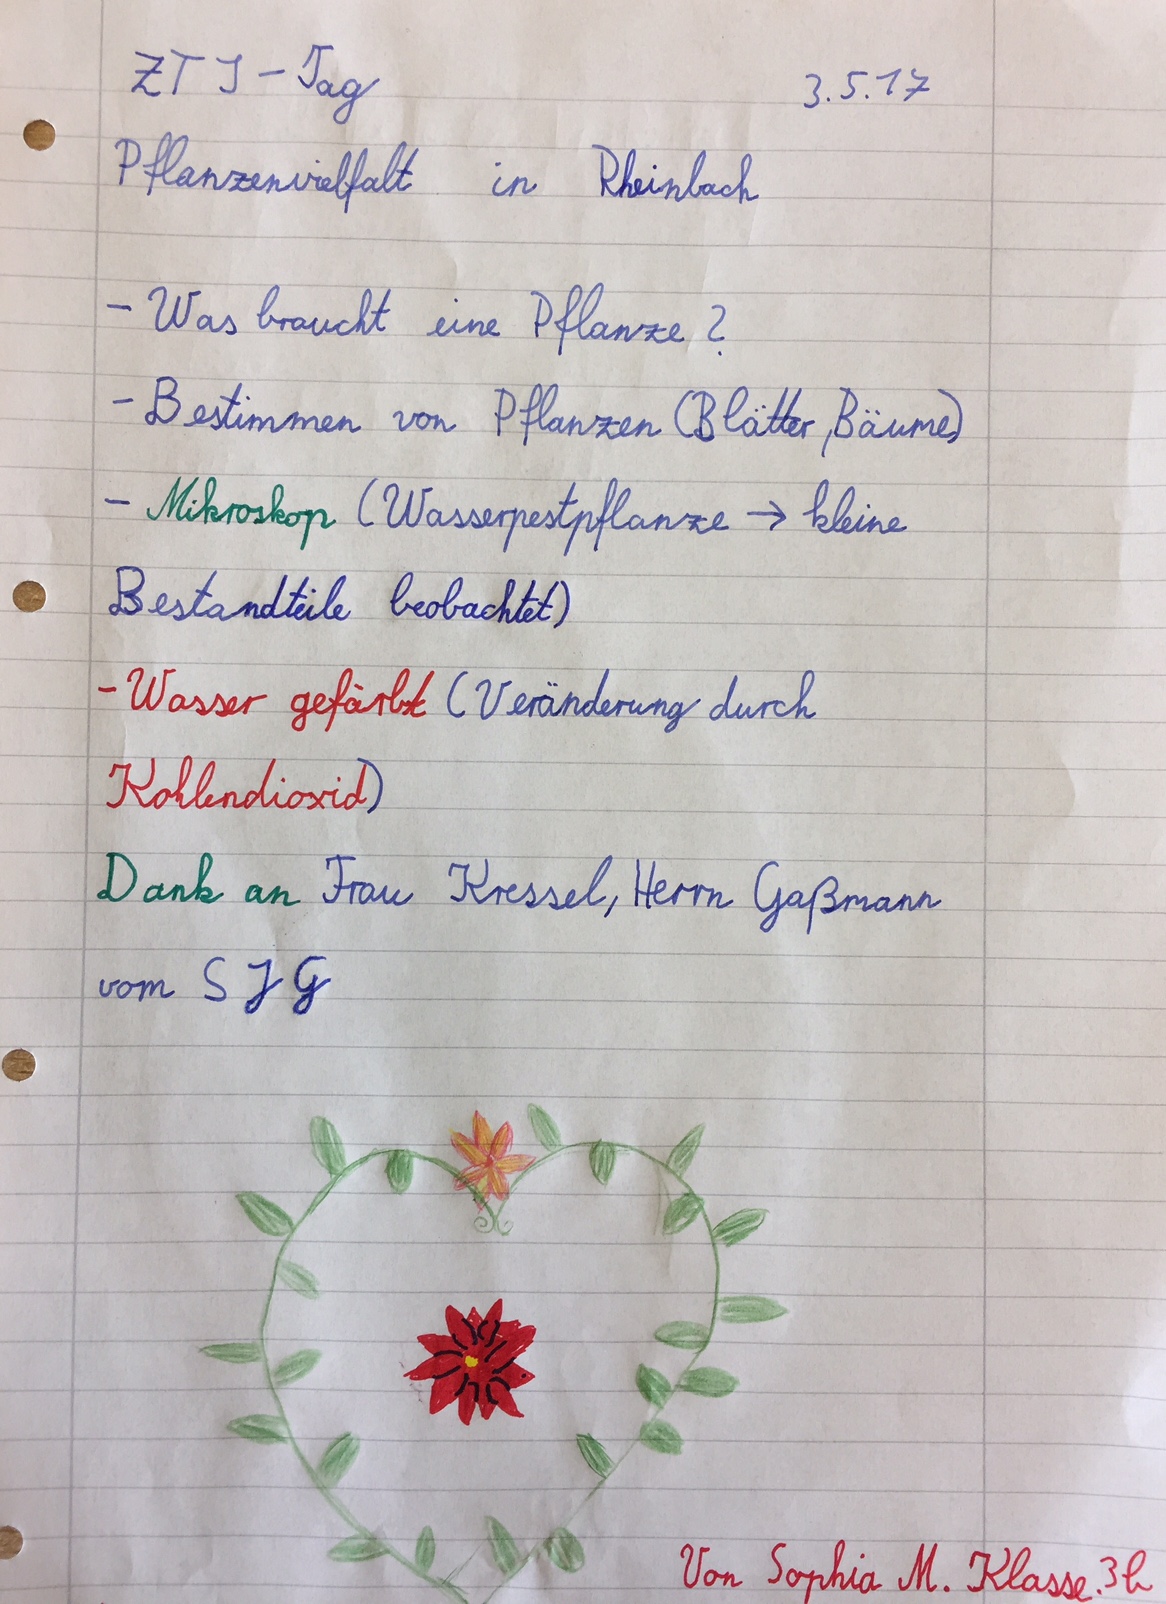 ZTI-Tag 3.5.17
Pflanzenvielfalt in Rheinbach
- Was braucht eine Pflanze?
- Bestimmen von Pflanzen (Blätter, Bäume)
- Mikroskop (Wasserpestpflanze → kleine
Bestandteile beobachtet)
- Wasser gefärbt (Veränderung durch
Kohlendioxid)
Dank an Frau Kressel, Herrn Gaßmann
vom SJG
Von Sophia M. Klasse.3b